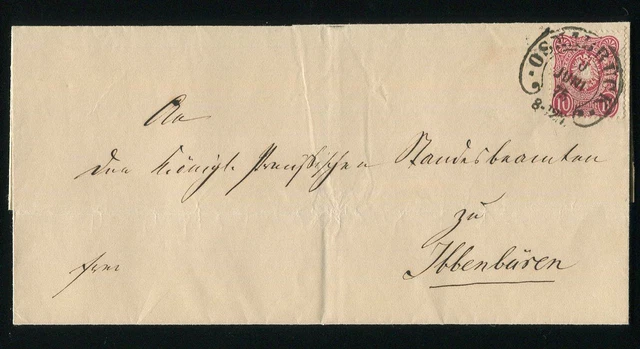 OSNABRÜCK
JUNI
10
An
den Königl. Preußischen Standesbeamten
zu
Ibbenbüren
frei